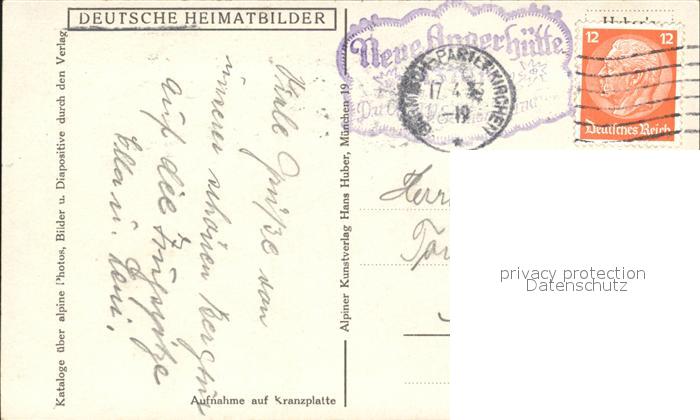 DEUTSCHE HEIMATBILDER
Kataloge über alpine Photos, Bilder u. Diapositive durch den Verlag
Viele Grüße von
unserer schönen Bergtour
auf die Zugspitze
Ella u. Leni.
Aufnahme auf Kranzplatte
Alpiner Kunstverlag Hans Huber, München 19
Neue Angerhütte
GARMISCH-PARTENKIRCHEN
17.4.
19
Huber's
12 12
Deutsches Reich
Herrn
privacy protection
Datenschutz